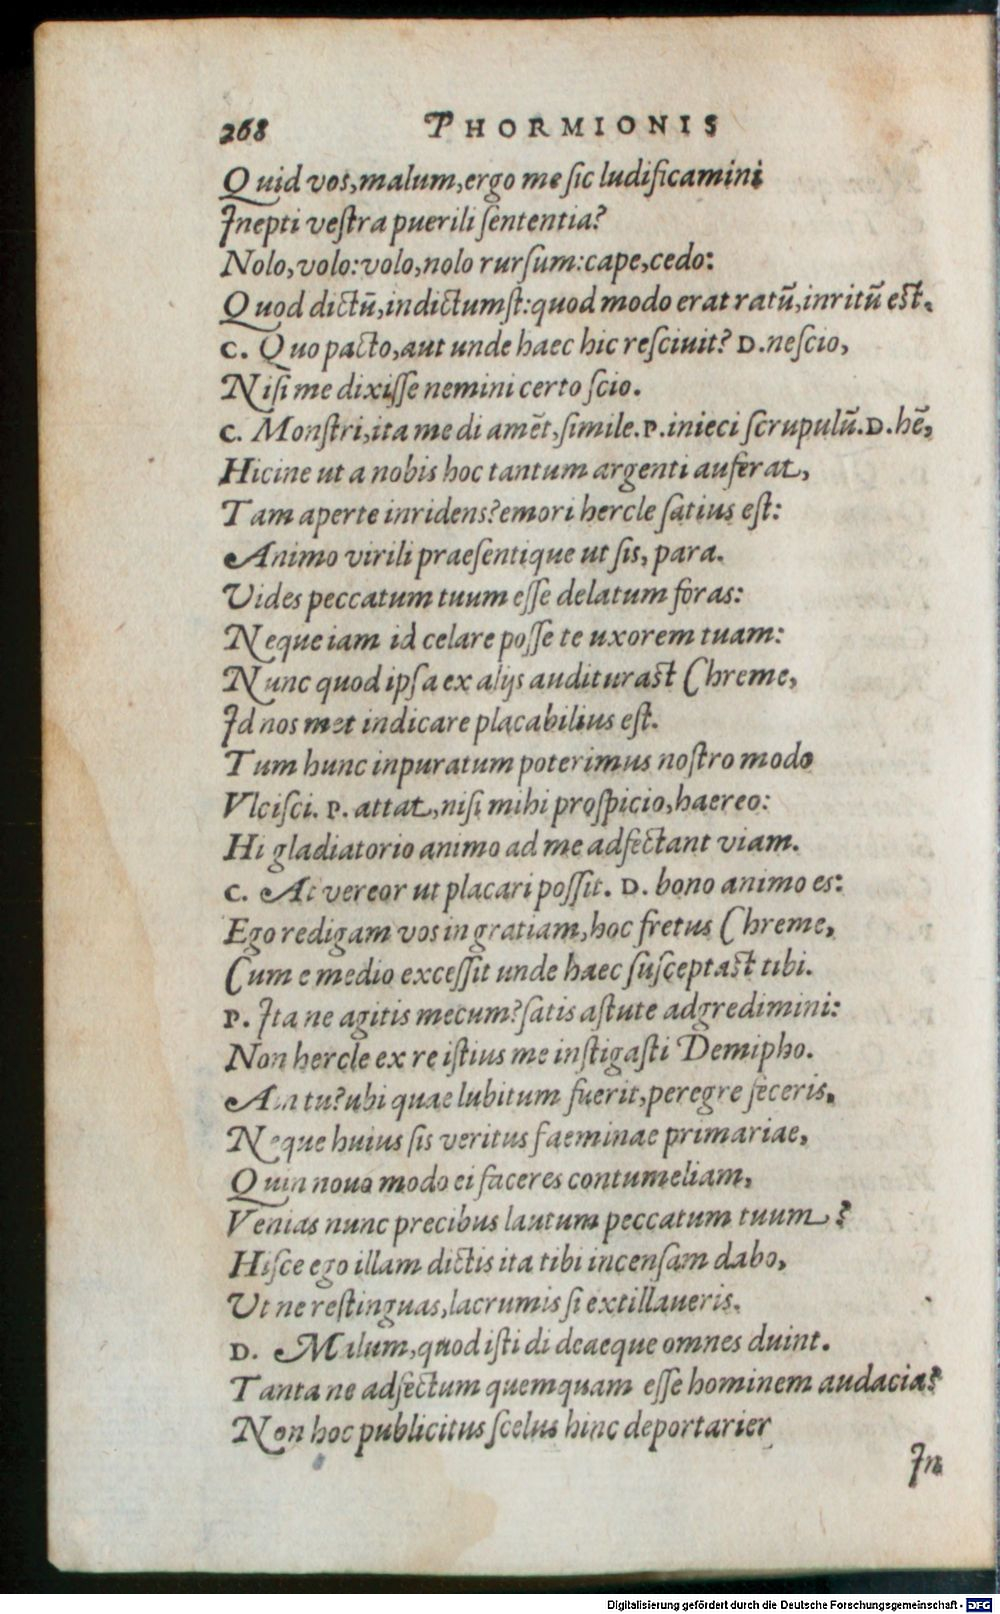 268 PHORMIONIS
Quid vos, malum, ergo me sic ludificamini
Inepti vestra puerili sententia?
Nolo, volo: volo, nolo rursum: cape, cedo:
Quod dictū, indictumst: quod modo erat ratū, inritū est.
C. Quo pacto, aut unde haec hic resciuit? D. nescio,
Nisi me dixisse nemini certo scio.
C. Monstri, ita me di amēt, simile. P. inieci scrupulū. D. hē,
Hicine ut a nobis hoc tantum argenti auferat,
Tam aperte inridens? emori hercle satius est:
Animo virili praesentique ut sis, para.
Vides peccatum tuum esse delatum foras:
Neque iam id celare posse te uxorem tuam:
Nunc quod ipsa ex alijs auditurast Chreme,
Id nosmet indicare placabilius est.
Tum hunc inpuratum poterimus nostro modo
Vlcisci. P. attat, nisi mihi prospicio, haereo:
Hi gladiatorio animo ad me adfectant viam.
C. At vereor ut placari possit. D. bono animo es:
Ego redigam vos in gratiam, hoc fretus Chreme,
Cum e medio excessit unde haec susceptast tibi.
P. Itane agitis mecum? satis astute adgredimini:
Non hercle ex re istius me instigasti Demipho.
Ain tu? ubi quae lubitum fuerit, peregre feceris,
Neque huius sis veritus faeminae primariae,
Quin nouo modo ei faceres contumeliam,
Venias nunc precibus lautum peccatum tuum?
Hisce ego illam dictis ita tibi incensam dabo,
Ut ne restinguas, lacrumis si extillaueris.
D. Malum, quod isti di deaeque omnes duint.
Tantane adfectum quemquam esse hominem audacia?
Non hoc publicitus scelus hinc deportarier
In
Digitalisierung gefördert durch die Deutsche Forschungsgemeinschaft - DFG